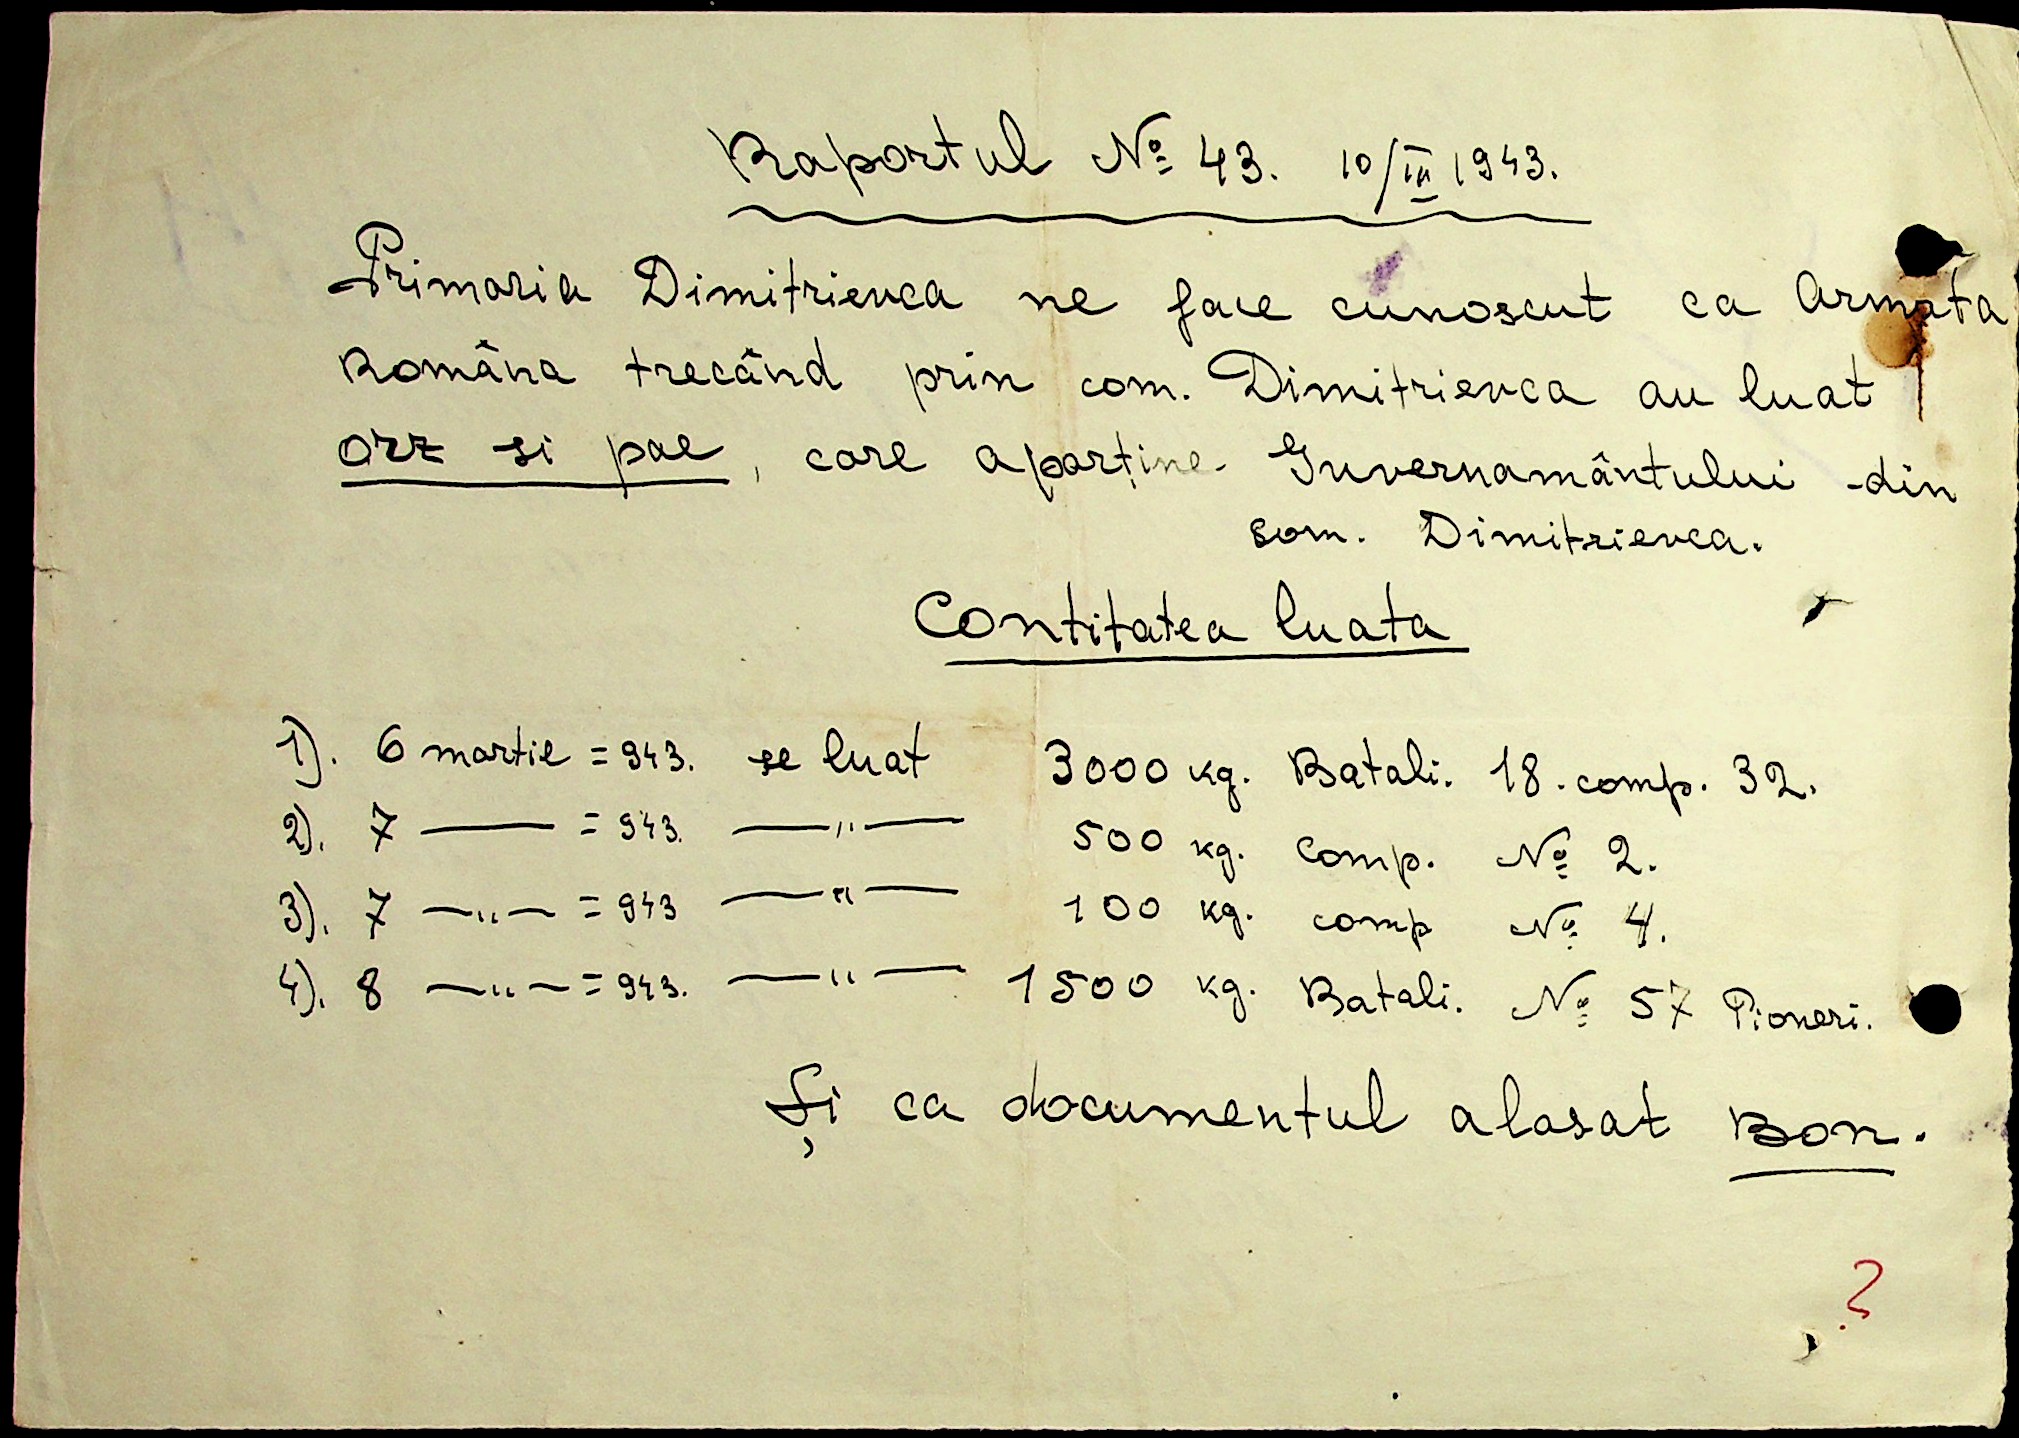 Raportul № 43. 10/III 1943.
Primaria Dimitrievca ne face cunoscut ca Armata
Româna trecând prin com. Dimitrievca au luat
orz si pae, care aparține Guvernamântului din
com. Dimitrievca.
Contitatea luata
1). 6 martie = 943. se luat 3000 kg. Batali. 18. comp. 32.
2). 7 — = 943. —"— 500 kg. comp. № 2.
3). 7 —"— = 943 —"— 100 kg. comp № 4.
4). 8 —"— = 943. —"— 1500 kg. Batali. № 57 Pioneri.
Și ca documentul alasat Bon.
?